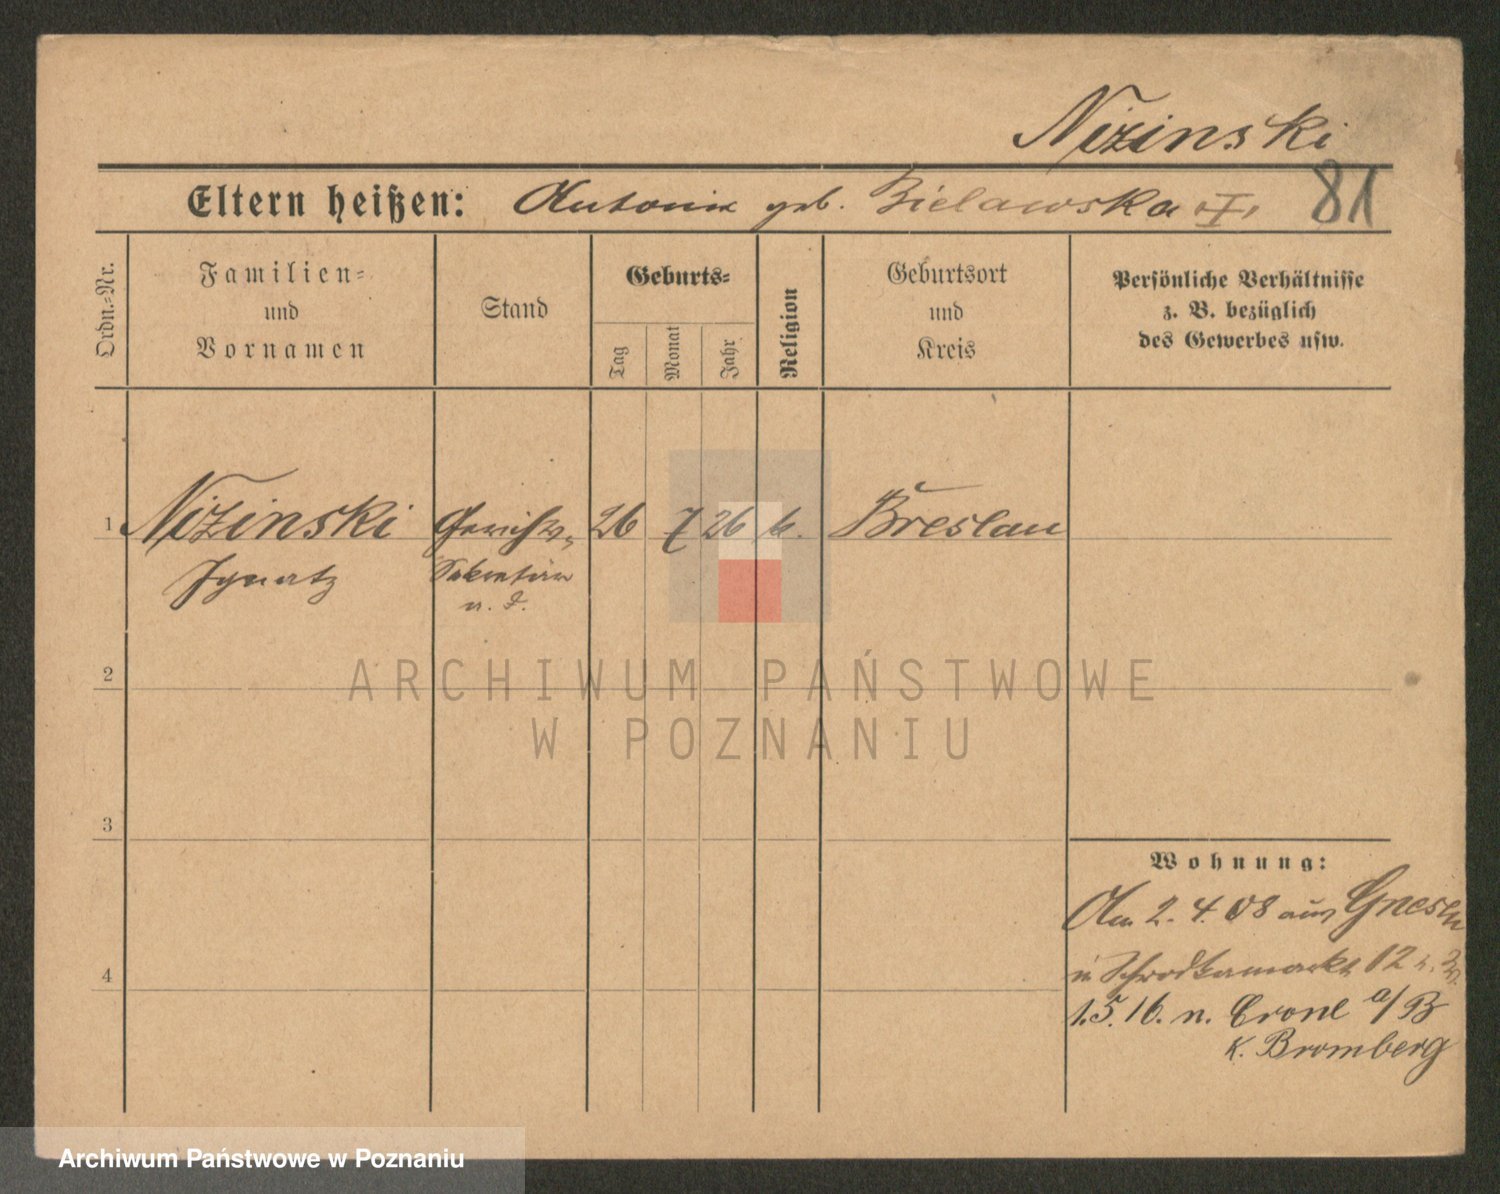 Niżinski
Eltern heißen: Antonie geb. Bielawska
81
Ordn.=Nr.
Familien=
und
Vornamen
Stand
Geburts=
Tag
Monat
Jahr
Religion
Geburtsort
und
Kreis
Persönliche Verhältnisse
z. B. bezüglich
des Gewerbes usw.
1 Niżinski Gerichts= 26 7 26 k. Breslau
Ignatz Sekretär
a. D.
2
ARCHIWUM PAŃSTWOWE
W POZNANIU
3
Wohnung:
Am 2. 4. 08 aus Gnesen
Schrodkamarkt 12
4
1.5. 16. n. Crone a/B
K. Bromberg
Archiwum Państwowe w Poznaniu